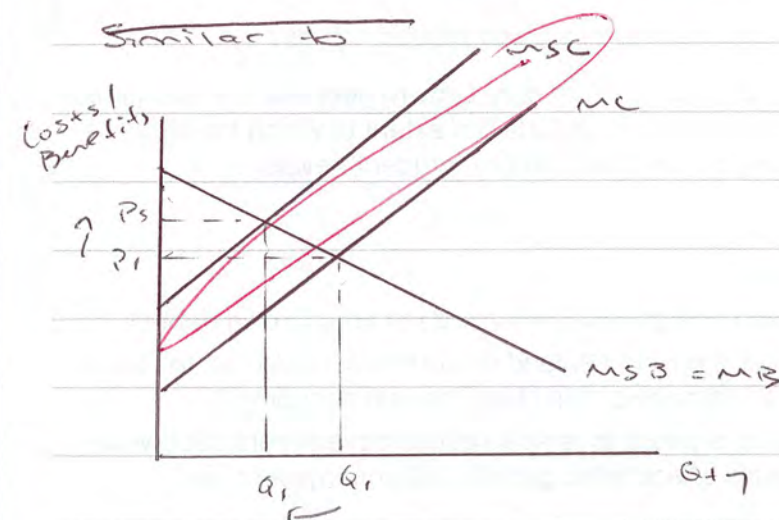 Similar to
MSC
MC
Costs/
Benefits
Ps
P1
MSB = MB
Q1 Q1
Qty